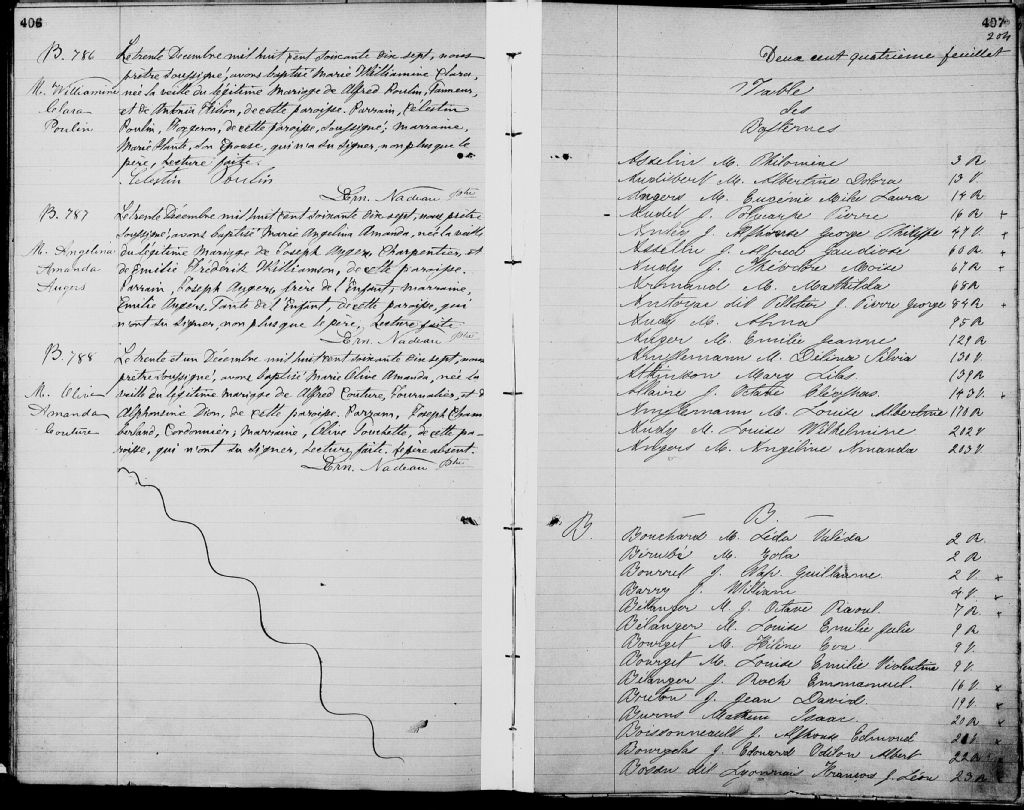 406
B. 786
M. Williamine
Clara
Poulin
Le trente Décembre mil huit cent soixante dix sept, nous
prêtre soussigné, avons baptisé Marie Williamine Clara,
née la veille du légitime Mariage de Alfred Poulin, Tanneur,
et de Antonia Filion, de cette paroisse. Parrain, Célestin
Poulin, Forgeron, de cette paroisse, soussigné; marraine,
Marie Plante, Son Epouse, qui n'a su signer, non plus que le
père, Lecture faite.
Celestin Poulin
Ern. Nadeau Ptre
B. 787
M. Angelina
Amanda
Angers
Le trente Décembre mil huit cent soixante dix sept, nous prêtre
soussigné, avons baptisé Marie Angelina Amanda, née la veille
du légitime Mariage de Joseph Angers, Charpentier, et
de Emilie Frédérik Williamson, de cette paroisse.
Parrain, Joseph Angers, frère de l'Enfant, marraine,
Emilie Angers, Tante de l'Enfant, de cette paroisse, qui
n'ont su signer, non plus que le père, Lecture faite
Ern. Nadeau ptre
B. 788
M. Olive
Amanda
Couture
Le trente et un Décembre mil huit cent soixante dix sept, nous
prêtre soussigné, avons baptisé Marie Olive Amanda, née la
veille du légitime mariage de Alfred Couture, Journalier, et d'
Alphonsine Dion, de cette paroisse. Parrain, Joseph Cham
berland, Cordonnier; Marraine, Olive Touchette, de cette pa-
roisse, qui n'ont su signer, Lecture faite. le père absent.
Ern. Nadeau Ptre
407
204
Deux cent quatrième feuillet
Table
des
Baptêmes
Asselin M. Philomène 3 R
Audibert M. Albertine Debora 13 V.
Angers M. Eugénie Laura 14 R
Audet J. Polycarpe Pierre 16 R x
Audy J. Alphonse George Philippe 47 V. x
Asselin J. Alfred Gaudiose 60 R. x
Audy J. Théodore Moïse 67 R x
Armand M. Mathilda 68 R
Antoyar dit Pelletier J. Pierre George 84 R x
Audy M. Alma 95 R
Auger M. Emilie Jeanne 129 R
Anglemann M. Délima Silvia 130 V.
Atkinson Mary Lilas 139 R
Allaire J. Octave Cléophas 143 V. x
Anglemann M. Louise Albertine 178 R
Audy M. Louise Wilhelmine 202 V
Angers M. Angéline Amanda 203 V.
B.
B.
Bouchard M. Léda Valéda 2 R.
Bérubé M. Zola 2 R
Bourret J. Nap. Guillaume 2 V. x
Barry J. William 4 V. x
Bélanger M. J. Octave Raoul. 7 R x
Bélanger M. Louise Emilie Julie 9 R
Bourget M. Héline Eva 9 V.
Bourget M. Louise Emilie Violentine 9 V.
Bélanger J. Roch Emmanuel. 16 V. x
Breton J. Jean David. 19 V. x
Burns Mathew Isaac 20 R x
Boissonneault J. Alphonse Edmond V x
Bourgeois J. Edouard Odilon Albert 22 R x
Bosen dit Lyonnais François J. Léon 23 R x